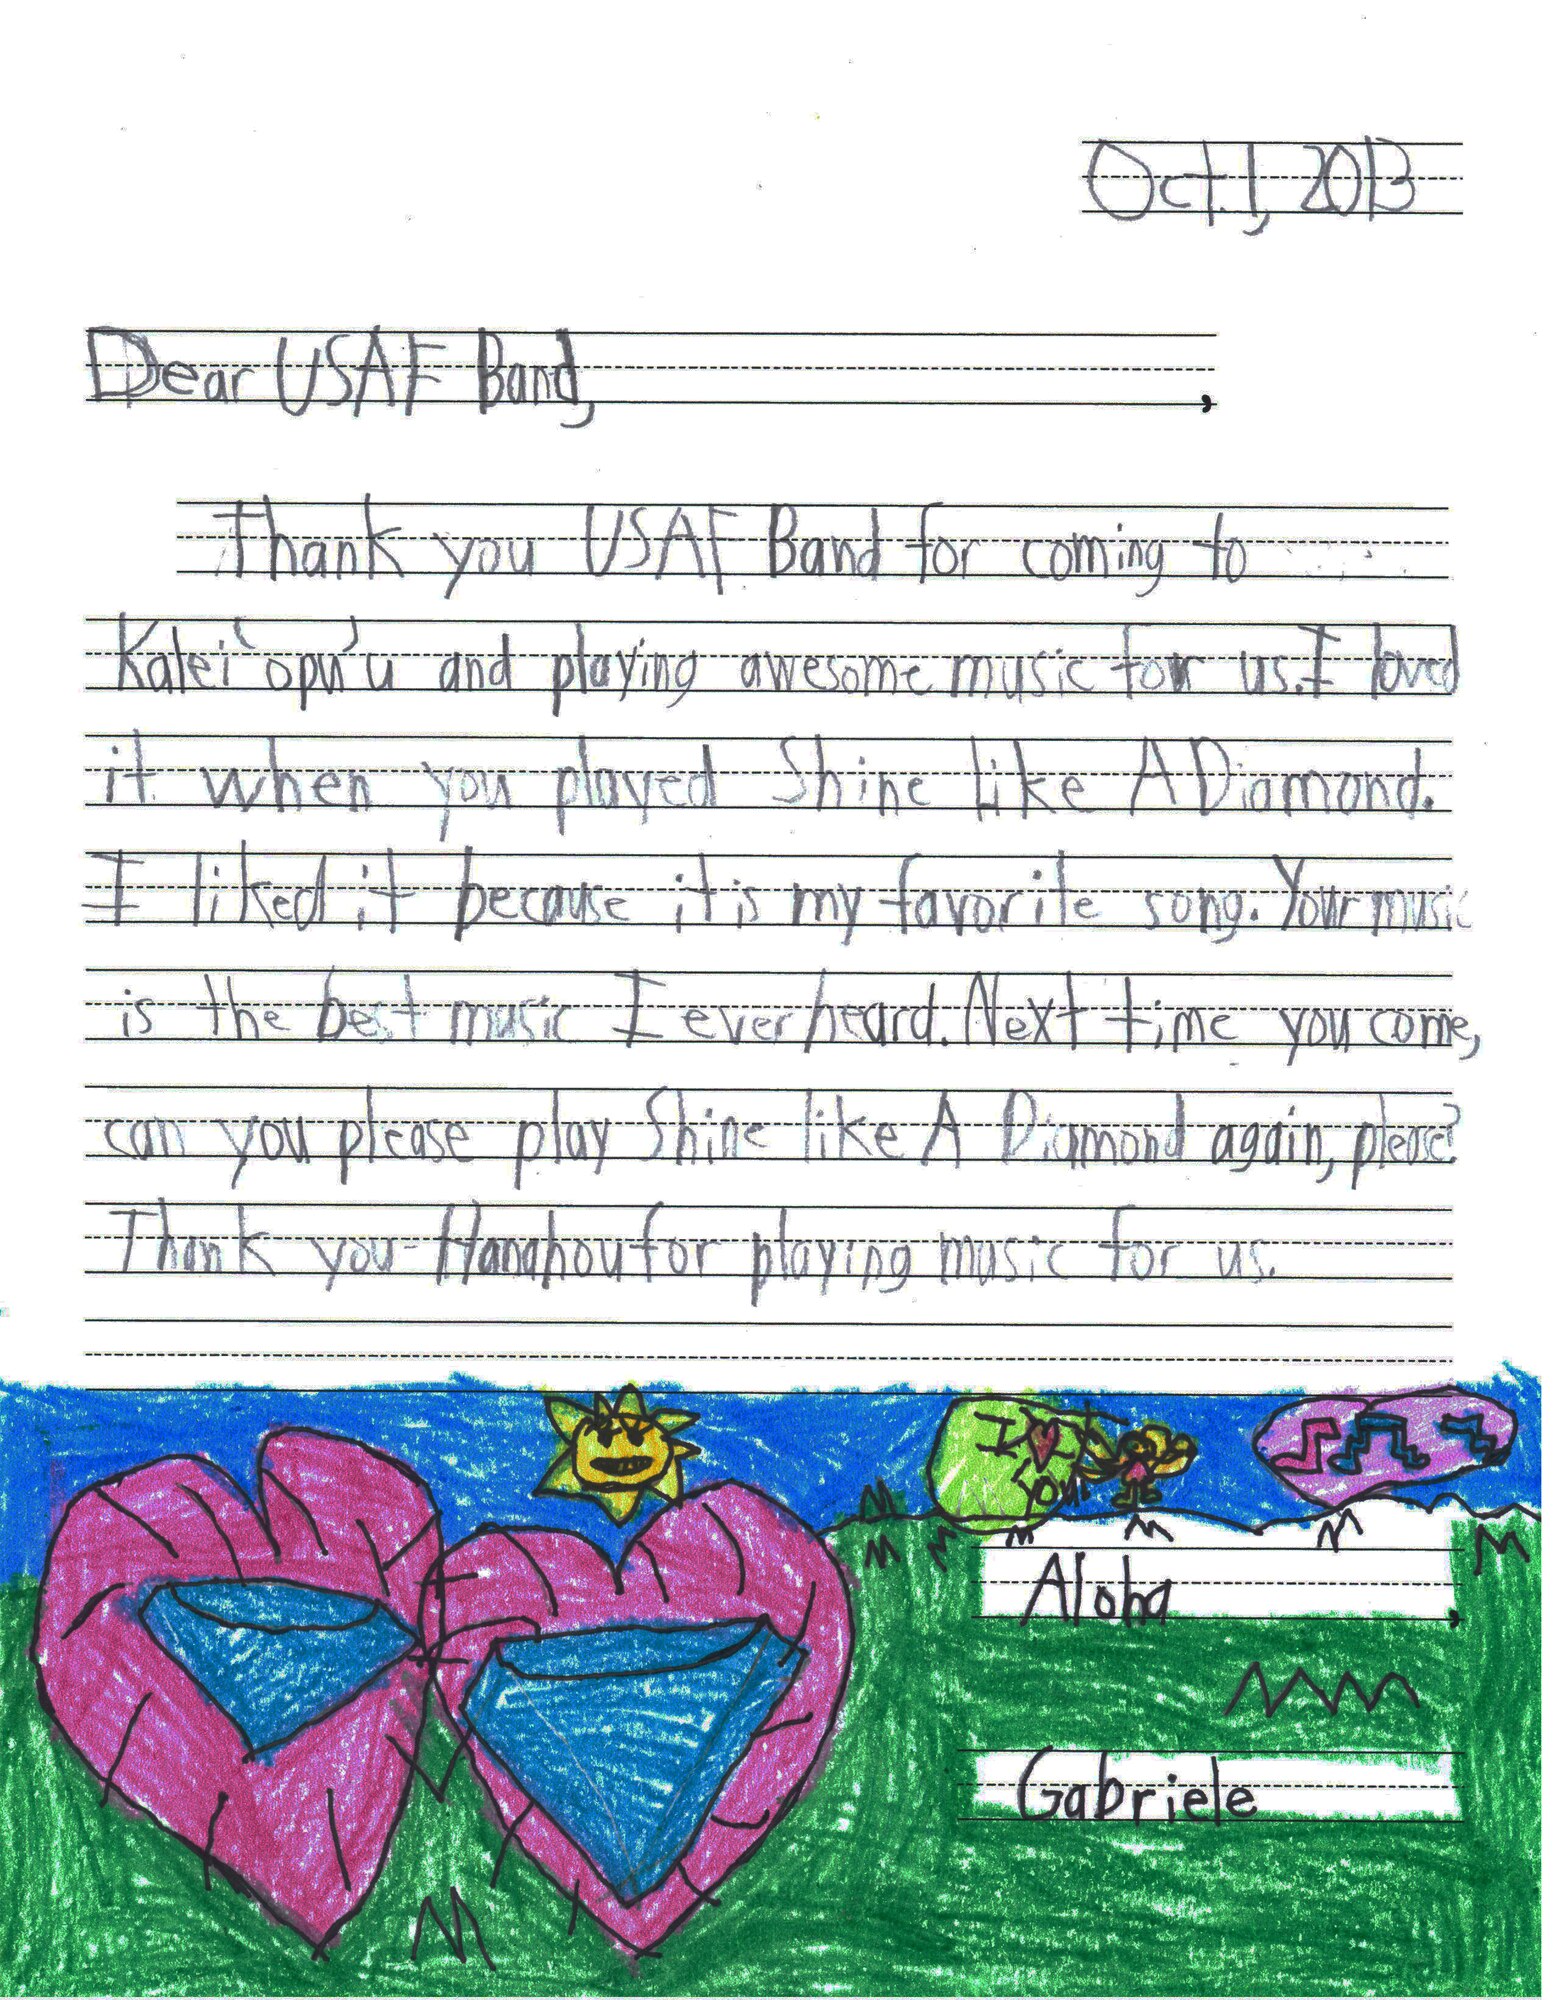 Oct. 1, 2013
Dear USAF Band,
,
Thank you USAF Band for coming to
Kalei'opu'u and playing awesome music for us. I loved
it when you played Shine like A Diamond.
I liked it because it is my favorite song. Your music
is the best music I ever heard. Next time you come,
can you please play Shine like A Diamond again, please?
Thank you-Hanahou for playing music for us.
I ♥
you!
Aloha ,
Gabriele